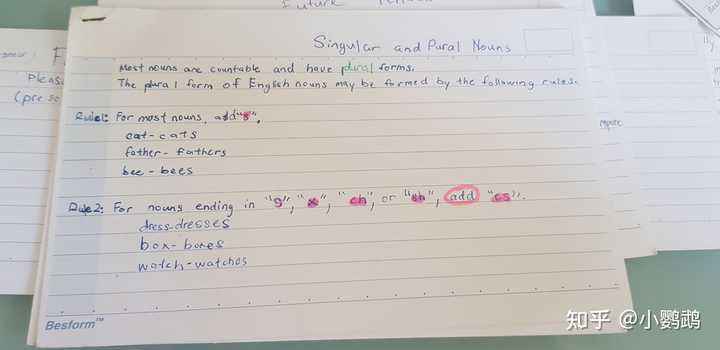 Future
Singular and Pural Nouns
Most nouns are countable and have plural forms.
The plural form of English nouns may be formed by the following rules.
Rule1: For most nouns, add "s".
cat-cats
father-fathers
bee-bees
Rule2: For nouns ending in "s", "x", "ch", or "sh", add "es".
dress-dresses
box-boxes
watch-watches
Besform™
Pleas
知乎 @小鹦鹉